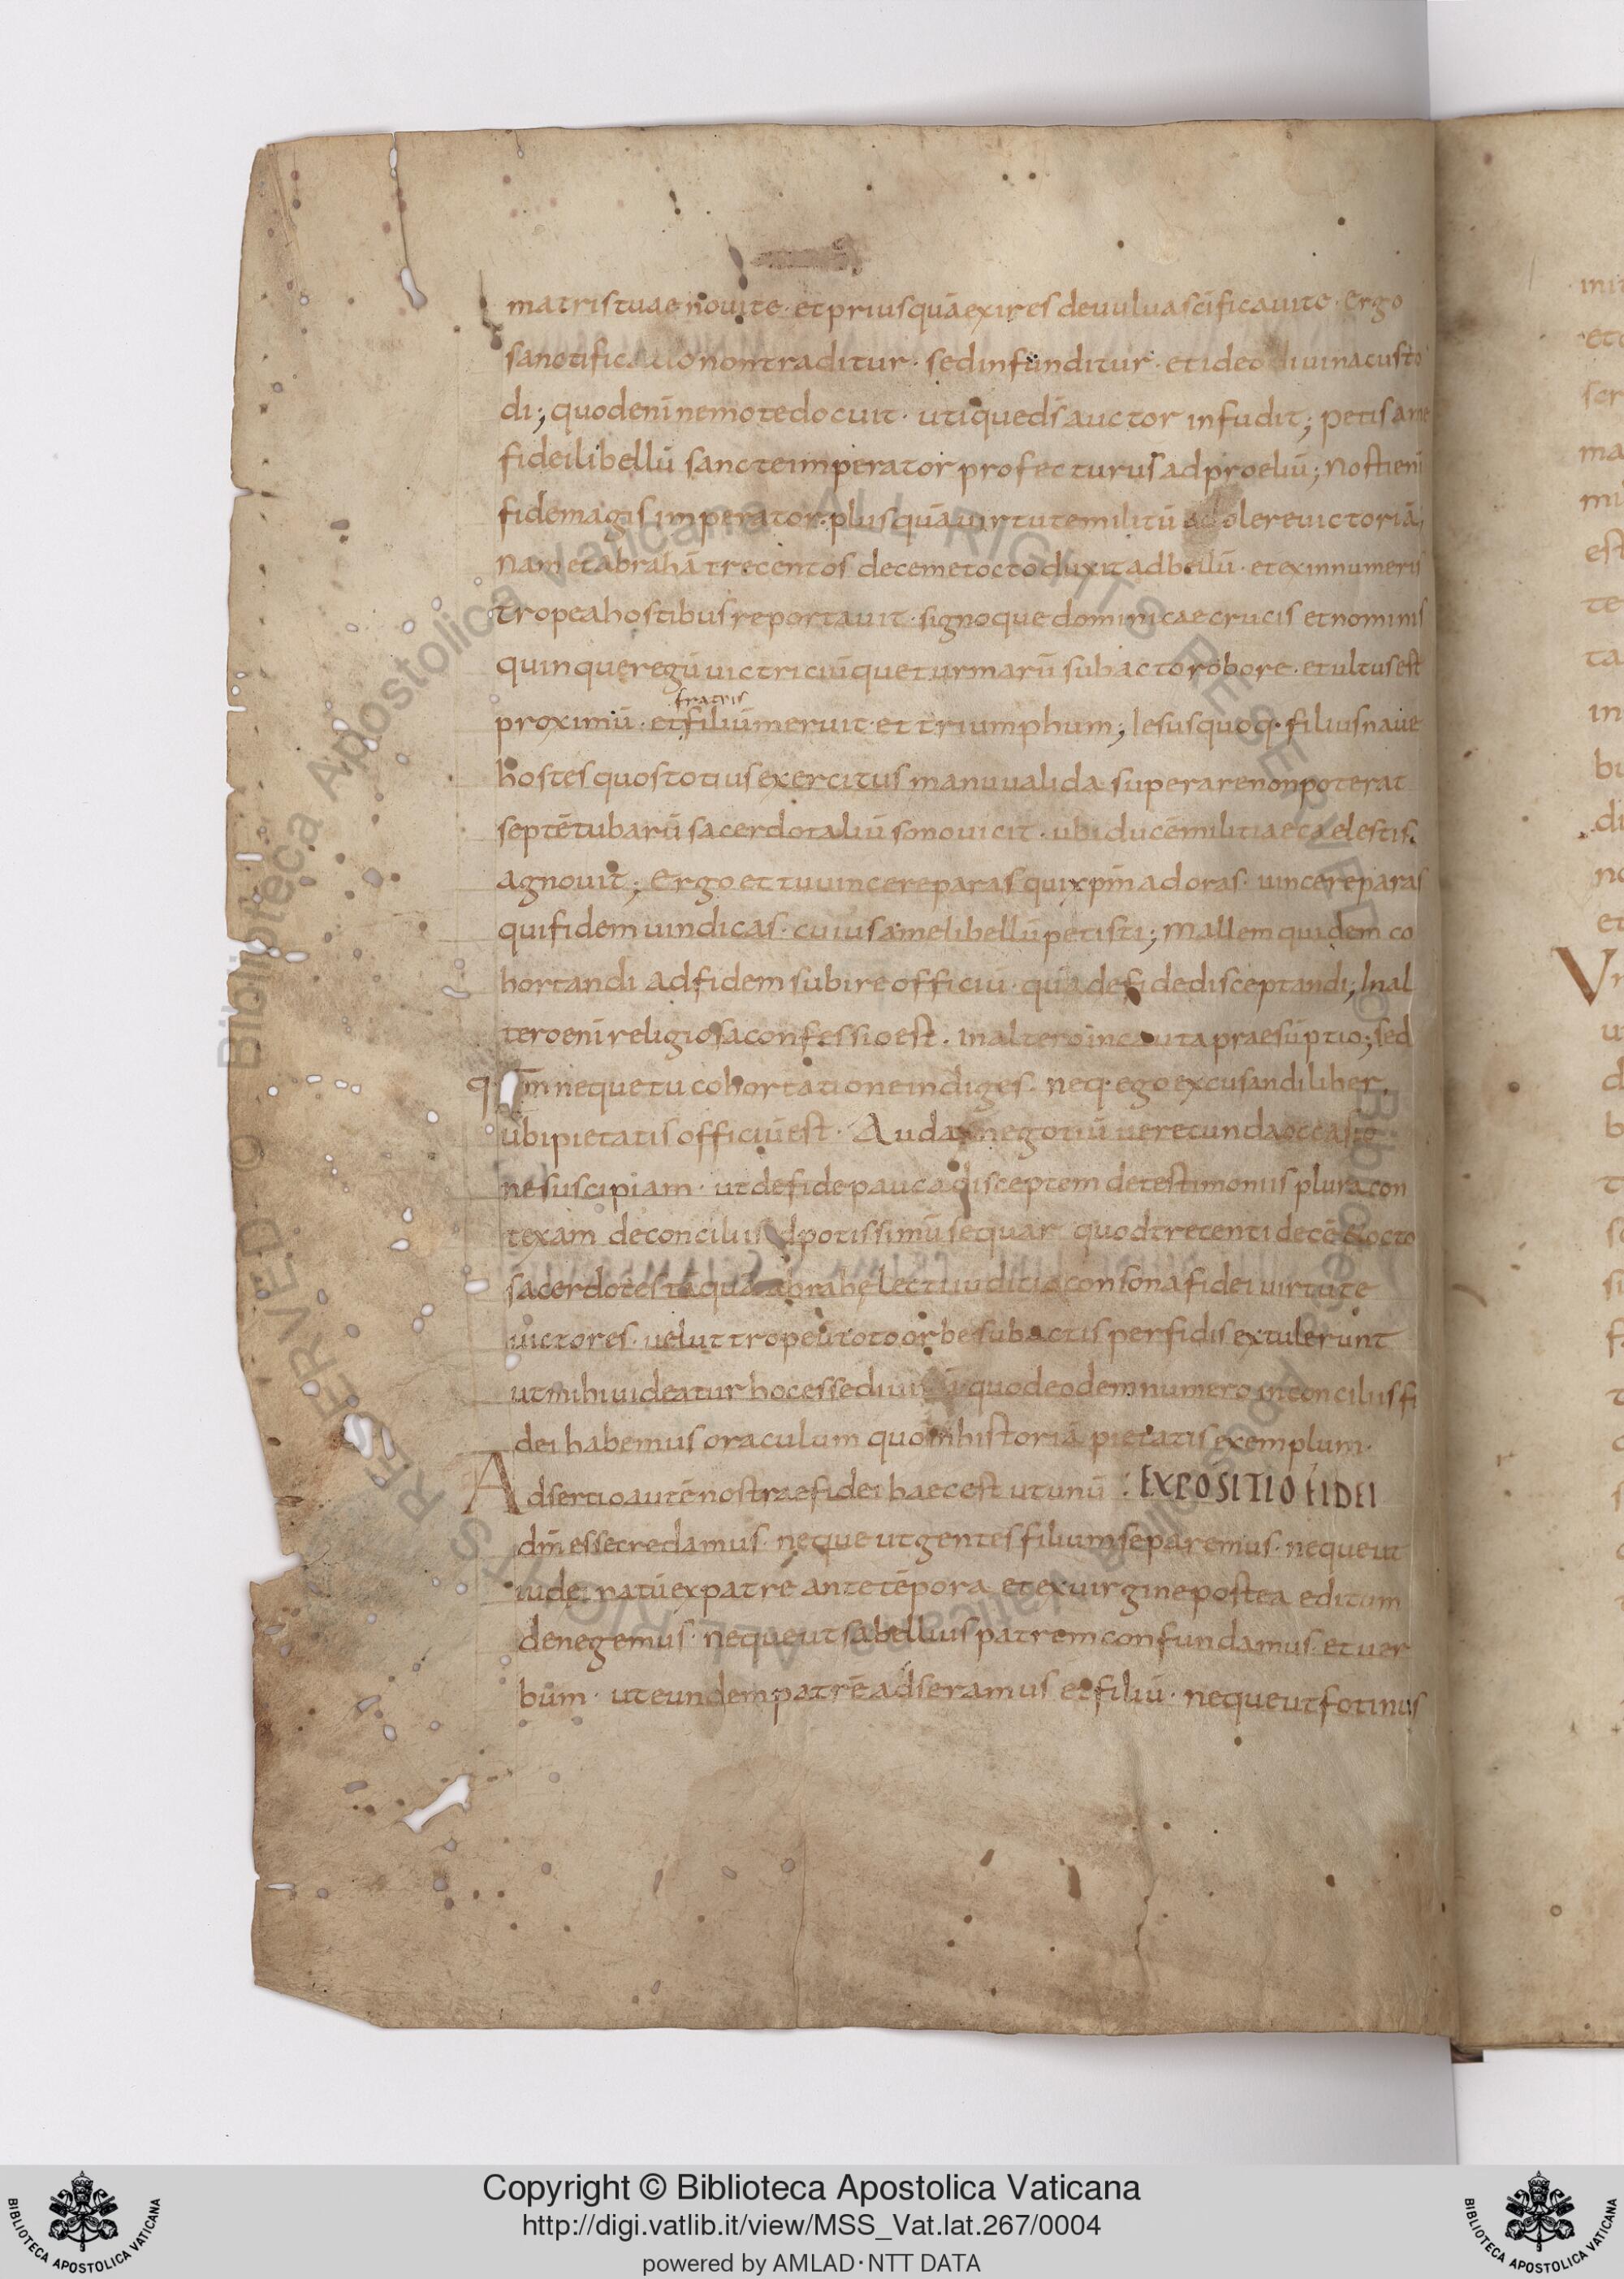 matris tuae novite · et priusquā exires de vulva scīficavi te · Ergo
sanctificatio non traditur · sed infunditur · et ideo divina custo
di; quod enī nemo te docuit · utique dś auctor infudit; petis a me
fidei libellū sancte imperator profecturus ad proeliū; Nosti enī
fide magis imperator · plus quā virtute militū olere victoriā,
Nam et abrahā trecentos decem et octo duxit ad bellū · et ex innumeris
tropea hostibus reportavit · signoque dominicae crucis et nominis
quinque regū victricīūque turmarū subacto robore · et ultus est
fratris
proximū · et filiū meruit · et triumphum; Iesus quoq · filius naue
hostes quos totius exercitus manu valida superare non poterat
septē tubarū sacerdotaliū sono vicit · ubi ducē militiae caelestis
agnovit; Ergo et tu vincere paras qui xpm̄ adoras · vincere paras
qui fidem vindicas · cuius a me libellū petisti; Mallem quidem co
hortandi ad fidem subire officiū · quā de fide disceptandi; In al
tero enī religiosa confessio est · in altero incauta praesūptio; sed
qm̄ neque tu cohortatione indiges · neq · ego excusandi liber,
ubi pietatis officiū est · Audax negotiū verecunda occasio
ne suscipiam · ut de fide pauca disceptem de testimoniis plura con
texam de conciliis id potissimū sequar quod trecenti decē & octo
sacerdotes tāquā abrahę lecti iudicio consona fidei virtute
victores · velut tropeū toto orbe subactis perfidis extulerunt
ut mihi videatur hoc esse divinū · quod eodem numero in conciliis fi
dei habemus oraculum quo in historiā pietatis exemplum ·
Adsertio autē nostrae fidei haec est ut unū : EXPOSITIO FIDEI
dm̄ esse credamus · neque ut gentes filium separemus · neque ut
iudei natū ex patre ante tēpora et ex virgine postea editum
denegemus · neque ut sabellius patrem confundamus · et ver
bum · ut eundem patrē adseramus et filiū · neque ut fotinus
Copyright © Biblioteca Apostolica Vaticana
http://digi.vatlib.it/view/MSS_Vat.lat.267/0004
powered by AMLAD · NTT DATA
BIBLIOTECA APOSTOLICA VATICANA
BIBLIOTECA APOSTOLICA VATICANA